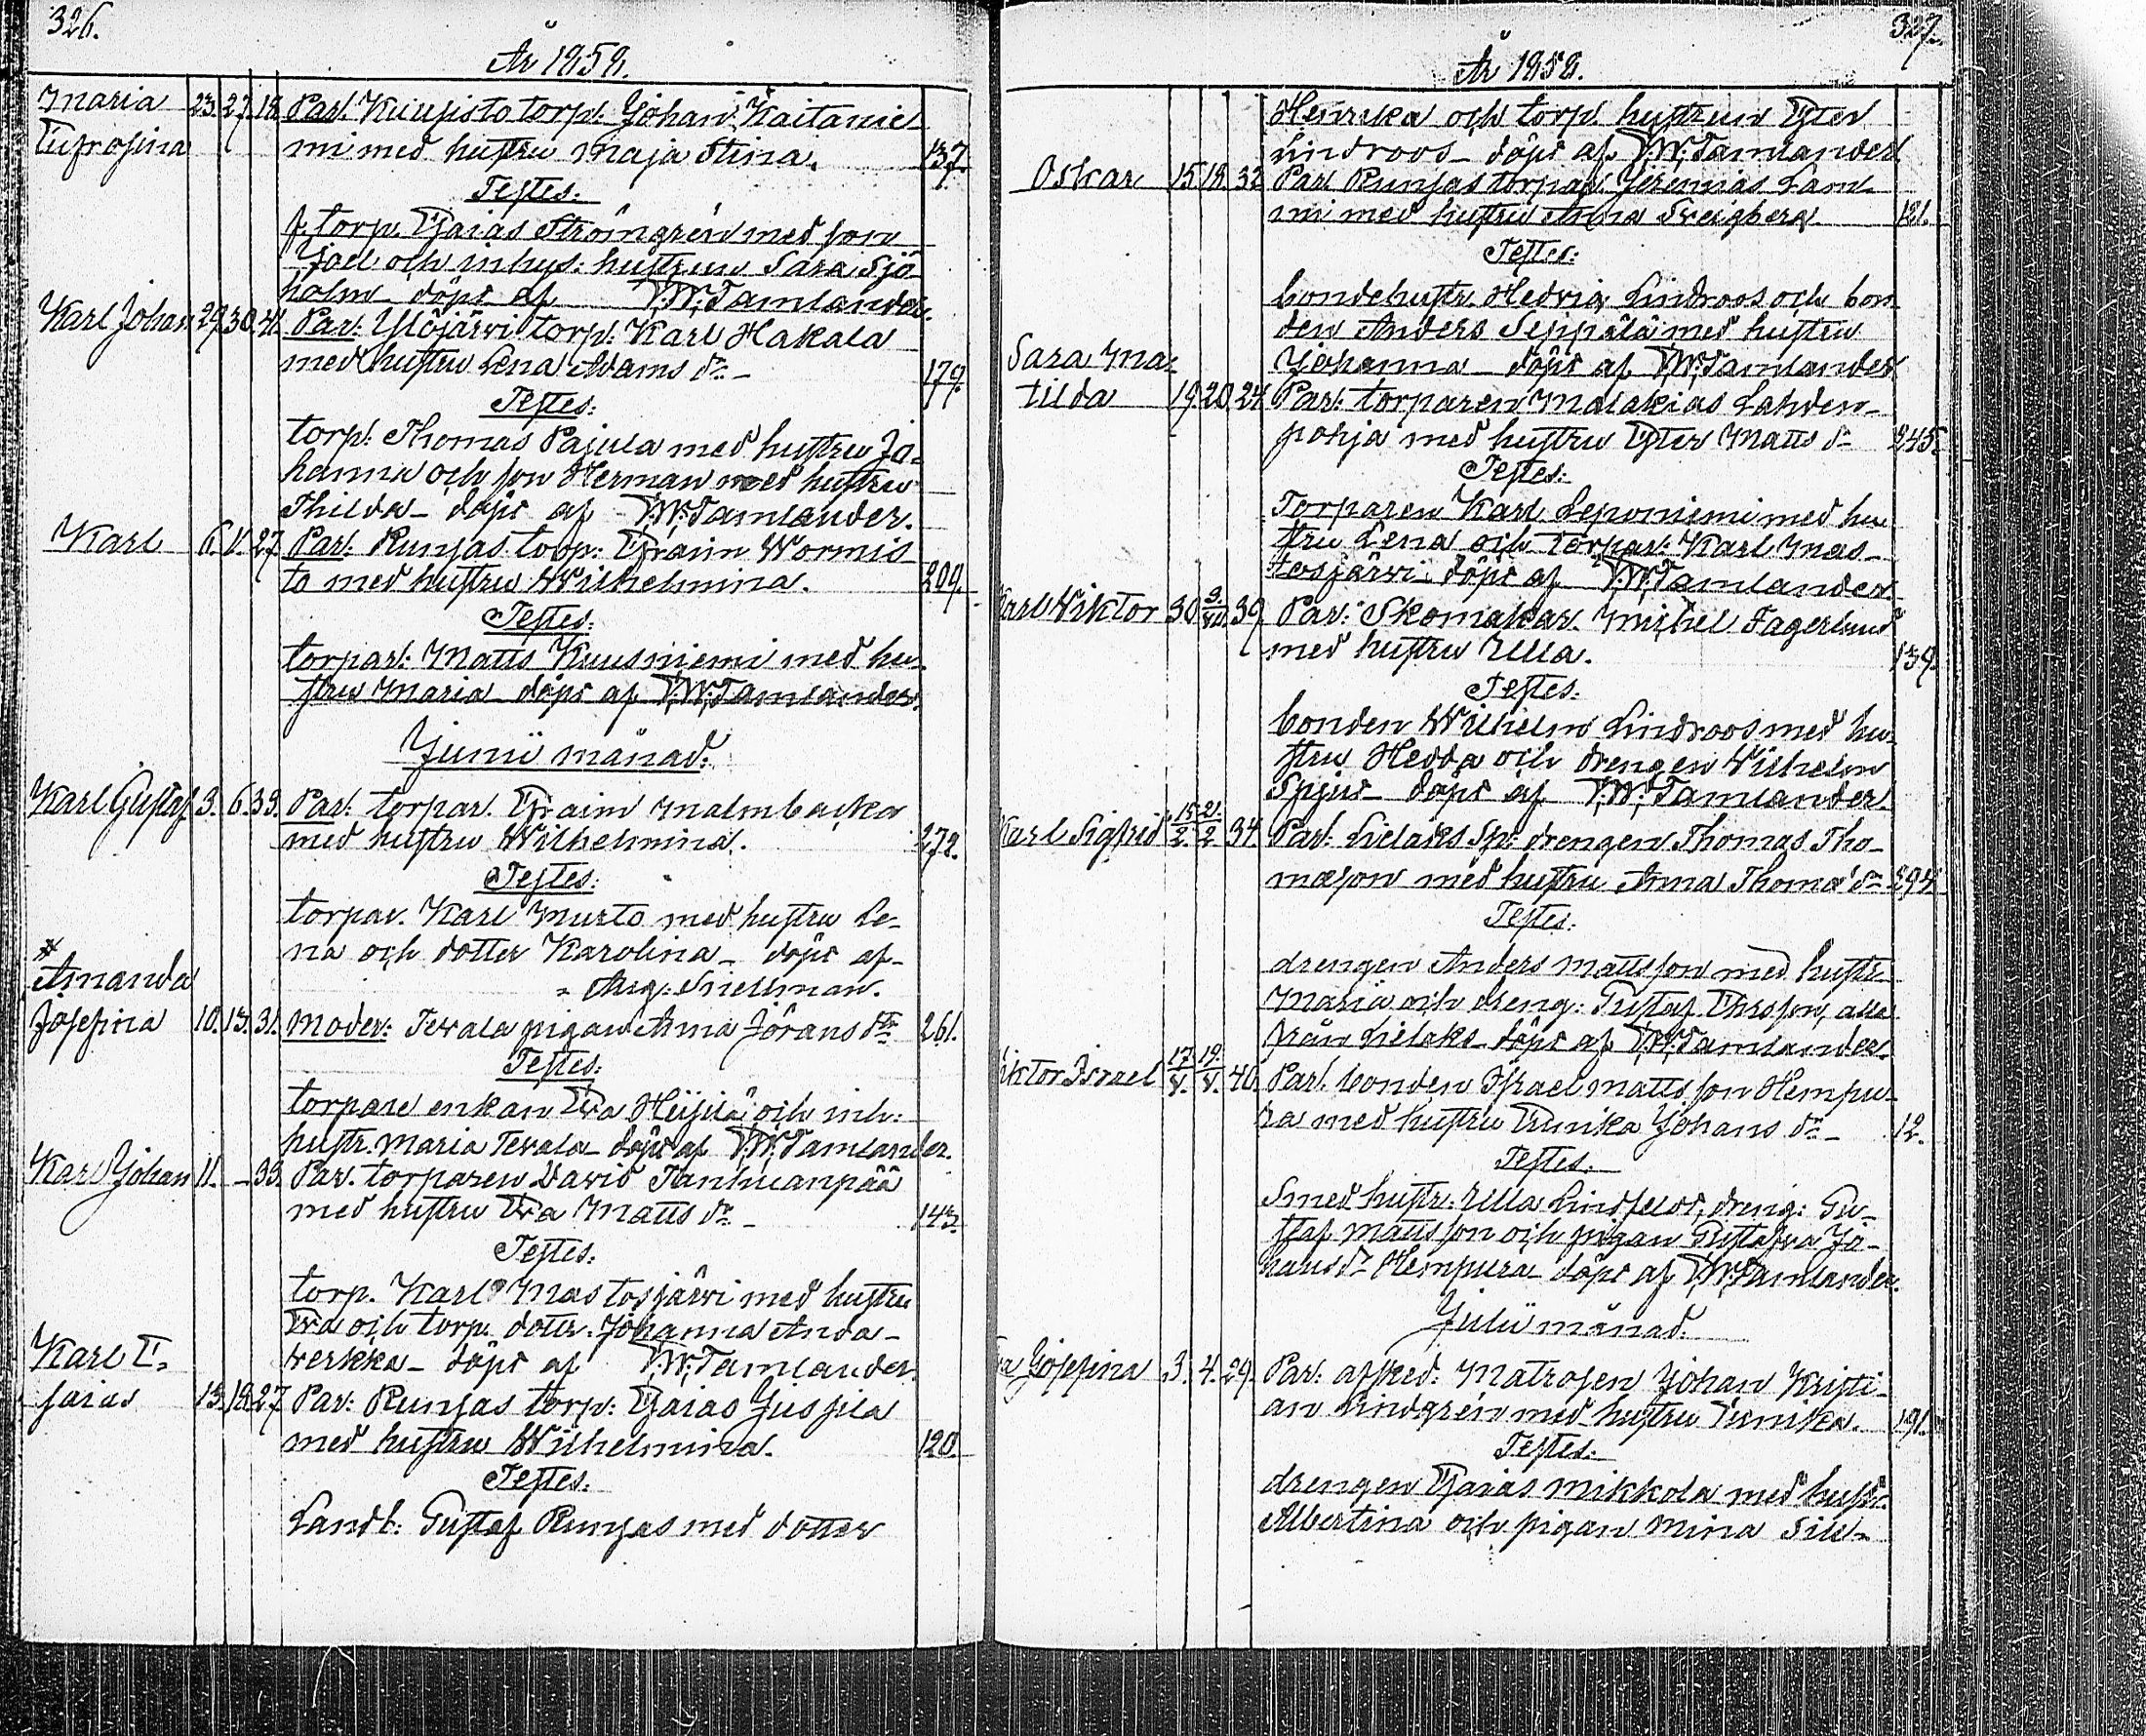 326.
År 1858.
Maria 23. 27. 18. Par. Kuusisto torp. Johan Kaitanie
Eufrosina mi med hustru Maja Stina. 137.
Testes:
f. torp. Esaias Strömgrén med son
Joel och inhys: hustrun Sara Sjö
holm döpt af V.W. Tamlander.
Karl Johan 29. 30. 41. Par: Ylöjärvi torp: Karl Hakala
med hustru Lena Adams dr. 179.
Testes:
torp: Thomas Pajula med hustru Jo-
hanna och son Herman med hustru
Thilda döpt af V.W. Tamlander.
Karl 6. 27 Par: Runsas torp: Efraim Wormis
to med hustru Wilhelmina. 209.
Testes:
torpar: Matts Kuusniemi med hu-
stru Maria döpt af V.W. Tamlander.
Junii månad:
Karl Gustaf 3. 6. 33. Par: torpar. Efraim Malmbacka
med hustru Wilhelmina. 272.
Testes:
torpar. Karl Murto med hustru Le-
na och dotter Karolina döpt af
Aug. Snellman.
*
Amanda
Josefina 10. 13. 31. Moder: Tevala pigan Anna Jörans dtr 261.
Testes:
torpare enkan Eva Heisilä och inh:
hustr. Maria Tevala döpt af V.W. Tamlander.
Karl Johan 11. – 33. Par. torparen David Tanhuanpää
med hustru Eva Matts dr 143.
Testes:
torp. Karl Mastosjärvi med hustru
Eva och torp. dottr. Johanna Anda-
verkka döpt af V.W. Tamlander.
Karl E-
saias 13. 18. 27 Par: Runsas torp: Esaias Jussila
med hustru Wilhelmina. 120.
Testes:
Landb: Gustaf Runsas med dotter
327.
År 1858.
Henrika och torp. hustrun Ester
Lindroos döpt af V.W. Tamlander.
Oskar 15 18. 32 Par. Runsas torpar. Jeremias Lam
mi med hustru Anna Sveigberg. 121.
Testes:
bondehustr. Hedvig Lindroos och bon
den Anders Seppälä med hustru
Johanna döpt af V.W. Tamlander.
Sara Ma-
tilda 19. 20. 24. Par: torparen Malakias Lahden-
pohja med hustru Ester Matts dr 245.
Testes:
Torparen Karl Leponiemi med hu
stru Lena och torpar: Karl Mas-
tosjärvi döpt af V.W. Tamlander.
Karl Viktor 30 3./VII. 39. Par: Skomakar. Michel Fagerlund
med hustru Ulla. 139.
Testes:
bonden Wilhelm Lindroos med hu
stru Hedda och drengen Wilhelm
Spjut döpt af V.W. Tamlander.
Karl Sigfrid 15./2. 21./2 34. Par: Lielaks Sp: drengen Thomas Tho-
masson med hustru Anna Thomædr 294
Testes:
drengen Anders Mattsson med hustr
Maria och dreng: Gustaf Ersson, alla
från Lielaks döpt af V.W. Tamlander.
iktor Israel 17./V. 19./V. 40. Par. bonden Israel Mattsson Hempu-
ra med hustru Eunika Johans dr 12.
Testes:
Smed hustr: Ulla Lindfelt, dreng: Gu-
staf Mattsson och pigan Gustafva Jo-
hans dr Hempura döpt af V.W. Tamlander.
Julii månad.
Josefina 3. 4. 29. Par: afsked: Matrosen Johan Kristi
an Lindgrén med hustru Eunika. 191.
Testes:
drengen Esaias Mikkola med hustr
Albertina och pigan Mina Sill-